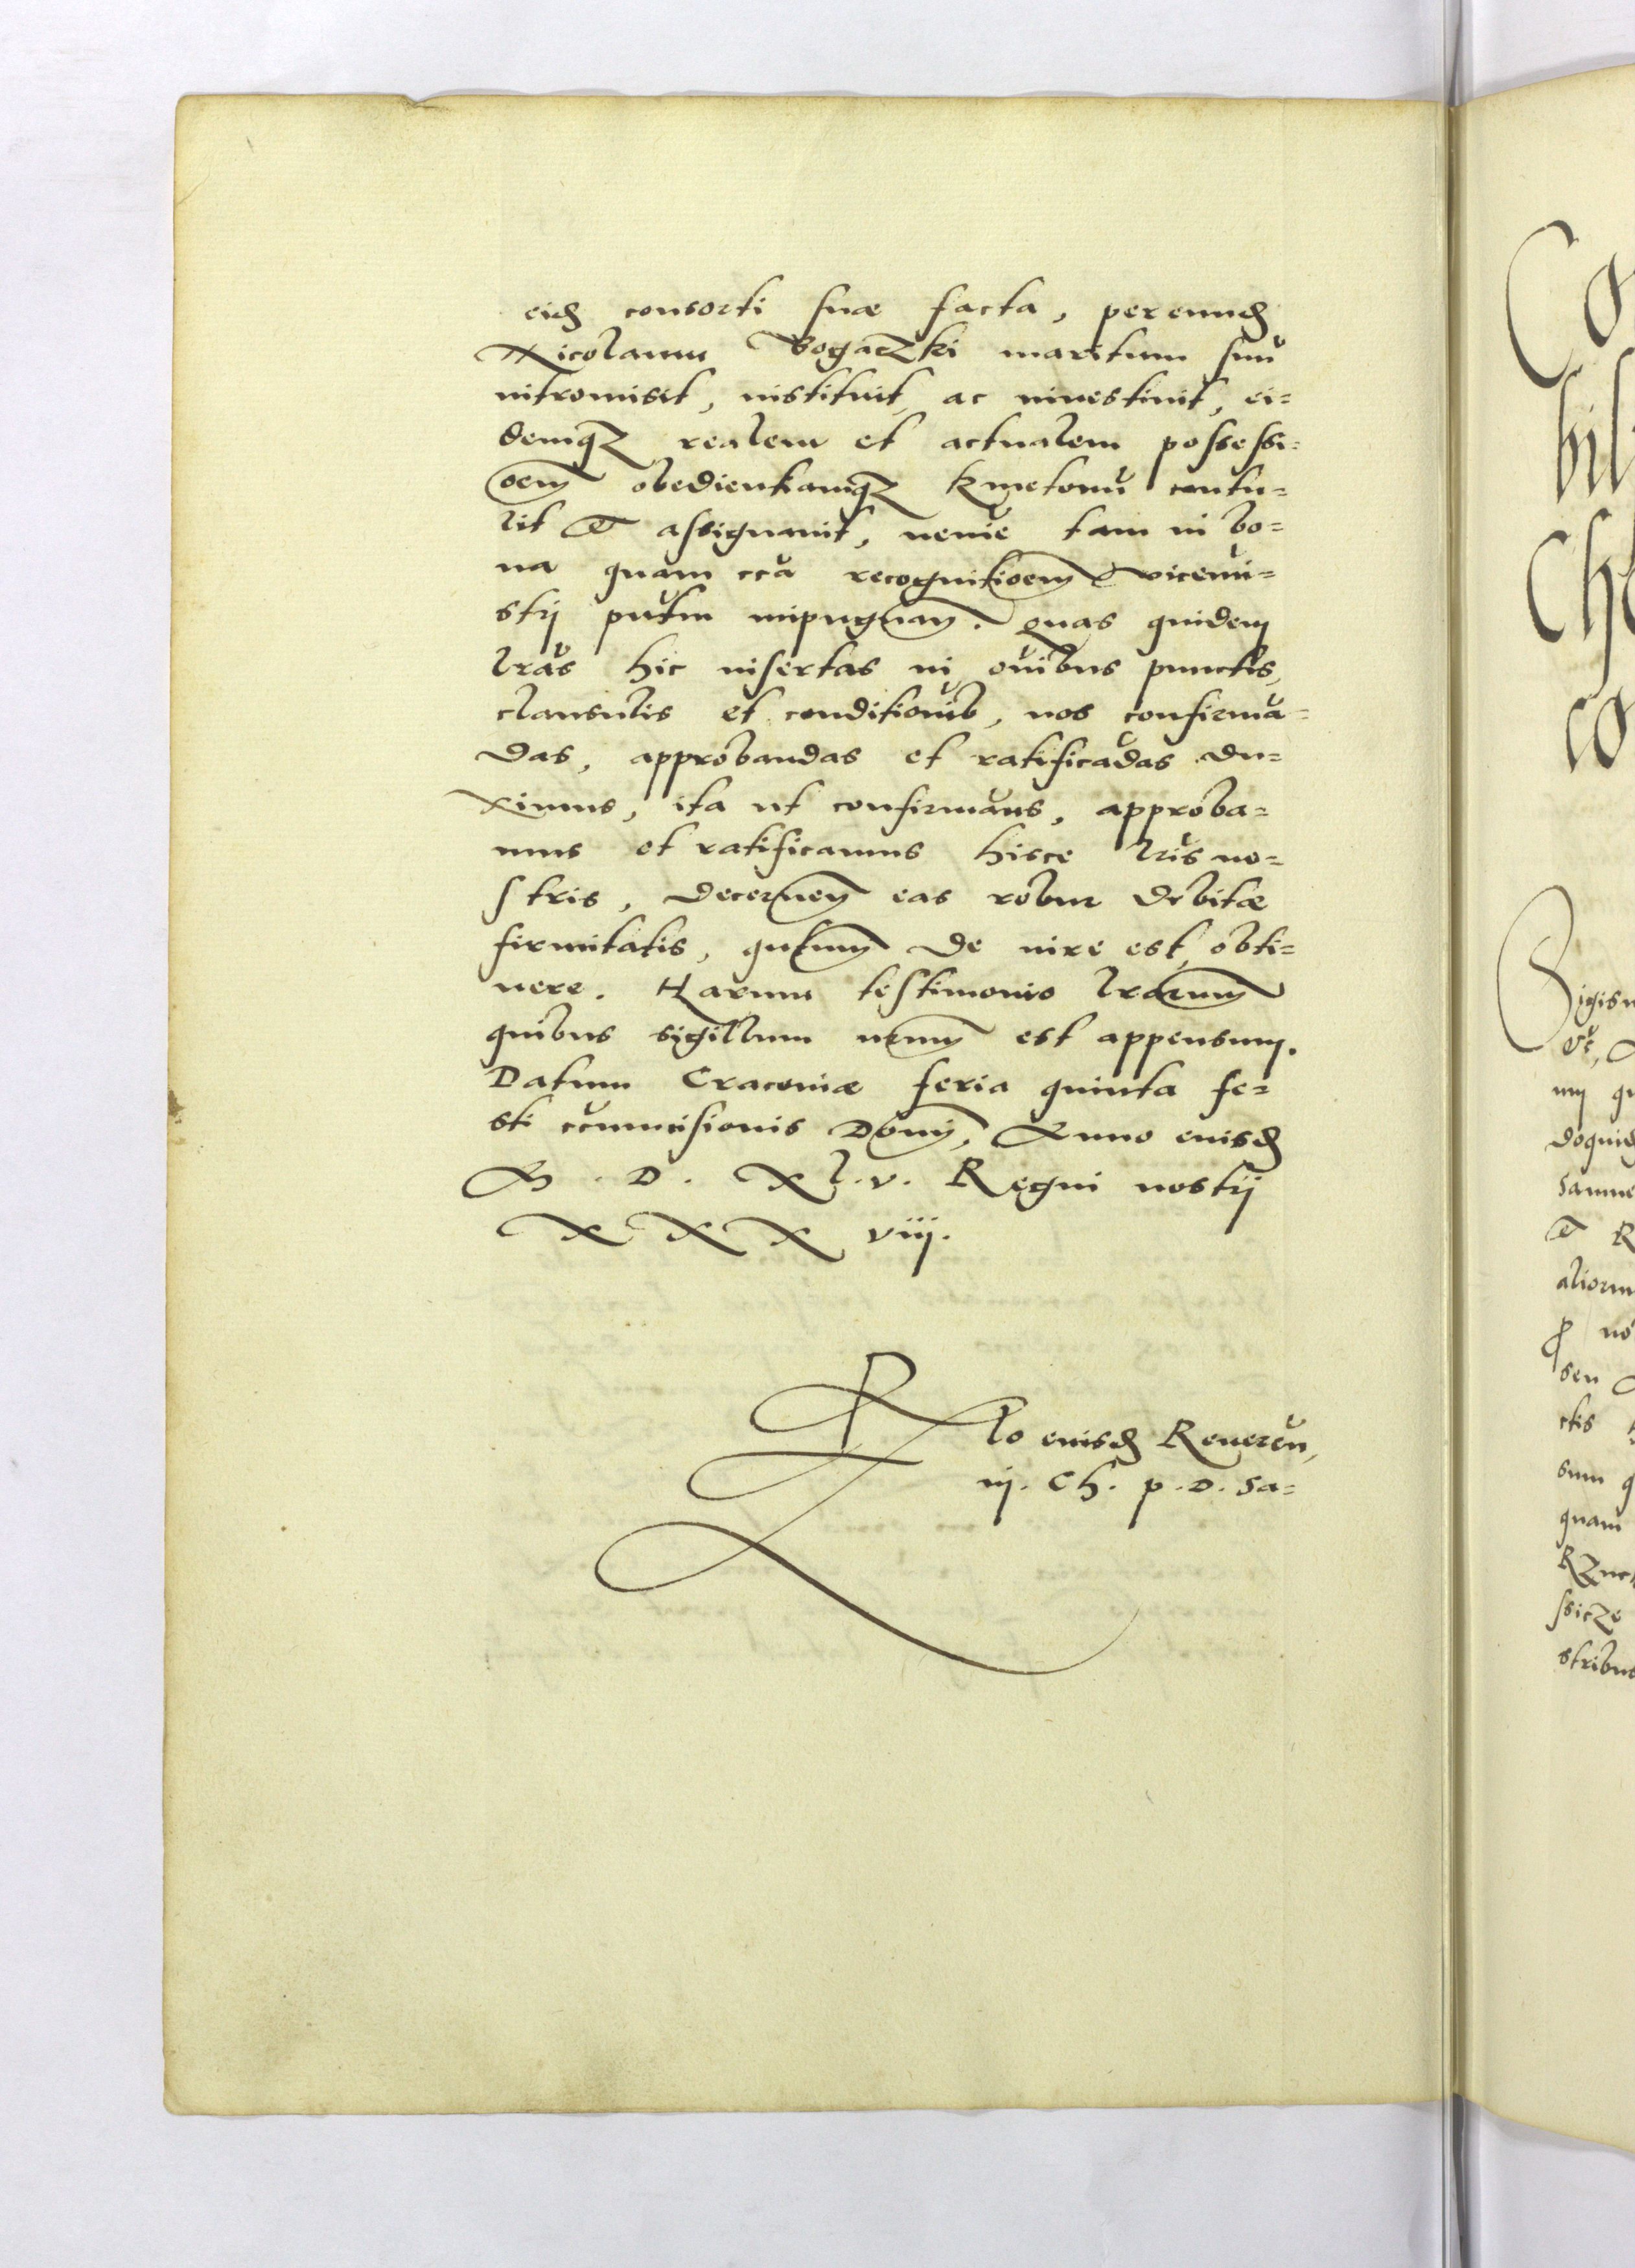 eid(em) consorti suæ facta, per eund(em)
Nicolaum Bogaczki maritum suū
intromisit, instituit, ac investivit, ei=
demq(ue) realem et actualem possessi=
oem obedientiamq(ue) kmetonū contu=
lit et assignavit, nemīe tam in bo=
na quam ccā recognitioem vicemi=
strj pn̄tm impugnan. Quas quidem
lrās hic insertas in om̄ibus punctis,
clausulis et conditionib, nos confirmā=
das, approbandas et ratificādas du=
ximus, ita ut confirmam̄s, approba=
mus et ratificamus hisce lrīs no=
stris, decernen eas robur debitæ
firmitatis, qntum de iure est, obti=
nere. Harum testimonio lrarum
quibus sigillum nrum est appensum.
Datum Cracoviæ feria quinta fe=
sti circūcisionis Dom̄j, Anno euisd(em)
M. D. Xl.v. Regni nostrj
XXX viij.
Rlo euisd(em) Reveren̄,
nj. Ch. p. D. Sa=
Sigism
doquid
samue
et R
aliorum
no
seu
ctis
sum q
quam
ssicze
stribus